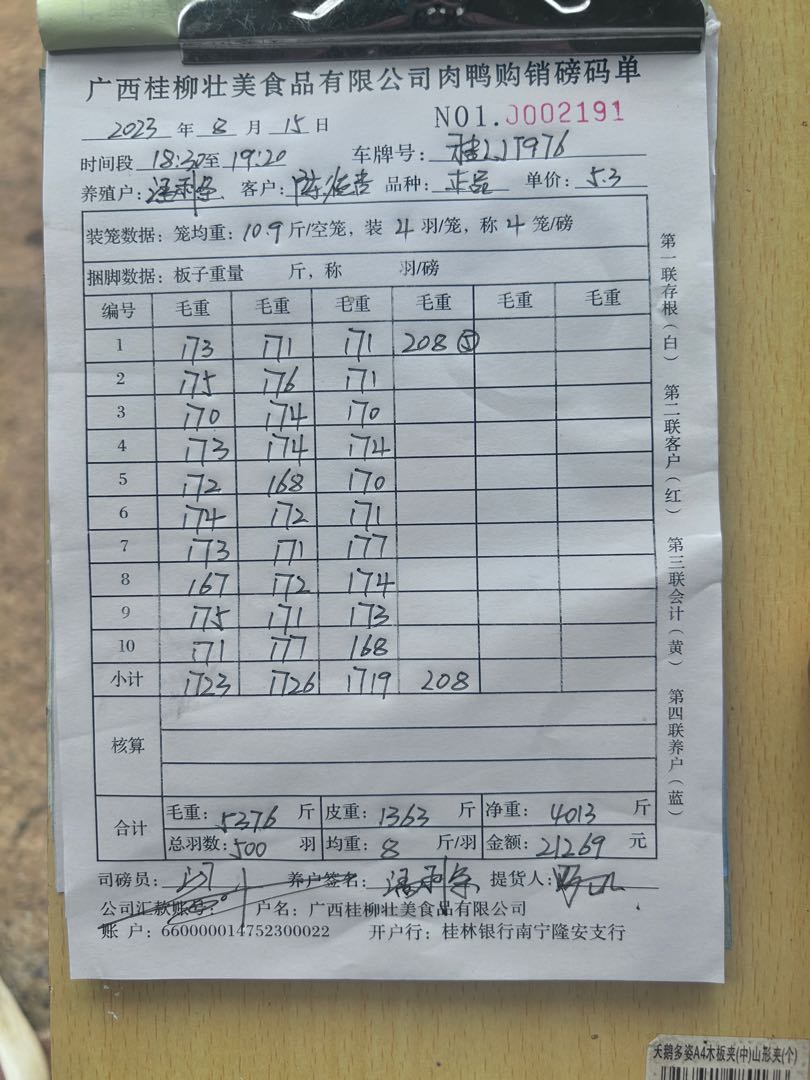 广西桂柳壮美食品有限公司肉鸭购销磅码单
2023 年 8 月 15 日 NO1.0002191
时间段 18:30至 19:20 车牌号: T976
养殖户: 客户: 品种: 正品 单价: 5.3
装笼数据: 笼均重: 10.9 斤/空笼, 装 4 羽/笼, 称 4 笼/磅
捆脚数据: 板子重量 斤, 称 羽/磅
编号 毛重 毛重 毛重 毛重 毛重 毛重
1 173 171 171 208 ⑤
2 175 176 171
3 170 174 170
4 173 174 174
5 172 168 170
6 174 172 171
7 173 171 177
8 167 172 174
9 175 171 173
10 171 177 168
小计 1723 1726 1719 208
核算
合计 毛重: 5376 斤 皮重: 1363 斤 净重: 4013 斤
总羽数: 500 羽 均重: 8 斤/羽 金额: 21269 元
司磅员: 养户签名: 提货人:
公司汇款账号: 户名: 广西桂柳壮美食品有限公司
账 户: 660000014752300022 开户行: 桂林银行南宁隆安支行
第一联存根(白) 第二联客户(红) 第三联会计(黄) 第四联养户(蓝)
天鹅多姿A4木板夹(中)山形夹(个)